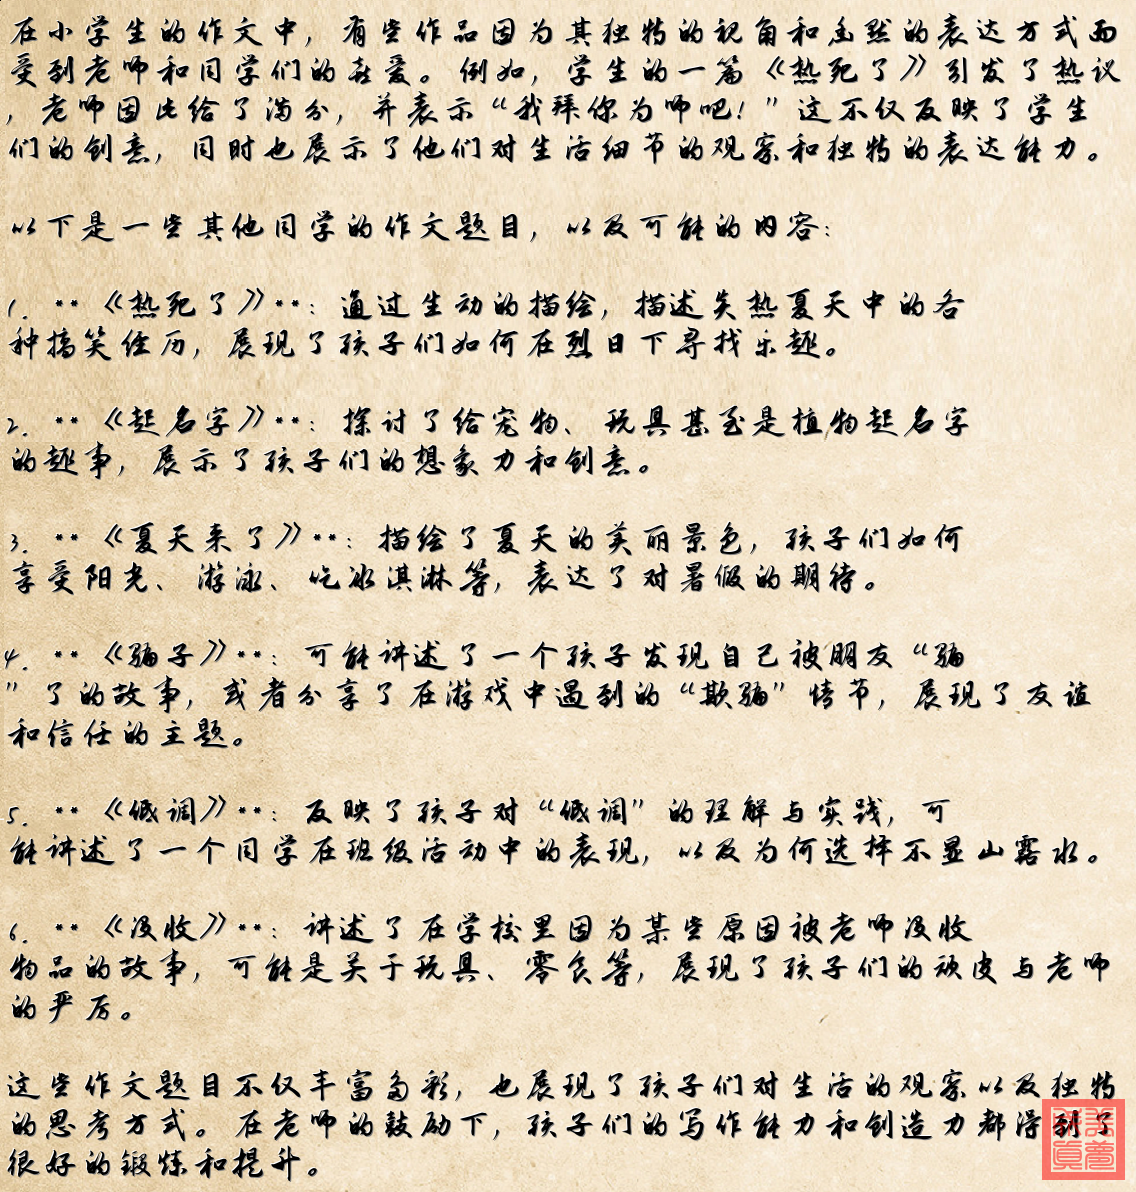 在小学生的作文中，有些作品因为其独特的视角和幽默的表达方式而
受到老师和同学们的喜爱。例如，学生的一篇《热死了》引发了热议
，老师因此给了满分，并表示“我拜你为师吧！”这不仅反映了学生
们的创意，同时也展示了他们对生活细节的观察和独特的表达能力。
以下是一些其他同学的作文题目，以及可能的内容：
1. **《热死了》**：通过生动的描绘，描述炎热夏天中的各
种搞笑经历，展现了孩子们如何在烈日下寻找乐趣。
2. **《起名字》**：探讨了给宠物、玩具甚至是植物起名字
的趣事，展示了孩子们的想象力和创意。
3. **《夏天来了》**：描绘了夏天的美丽景色，孩子们如何
享受阳光、游泳、吃冰淇淋等，表达了对暑假的期待。
4. **《骗子》**：可能讲述了一个孩子发现自己被朋友“骗
”了的故事，或者分享了在游戏中遇到的“欺骗”情节，展现了友谊
和信任的主题。
5. **《低调》**：反映了孩子对“低调”的理解与实践，可
能讲述了一个同学在班级活动中的表现，以及为何选择不显山露水。
6. **《没收》**：讲述了在学校里因为某些原因被老师没收
物品的故事，可能是关于玩具、零食等，展现了孩子们的顽皮与老师
的严厉。
这些作文题目不仅丰富多彩，也展现了孩子们对生活的观察以及独特
的思考方式。在老师的鼓励下，孩子们的写作能力和创造力都得到了
很好的锻炼和提升。